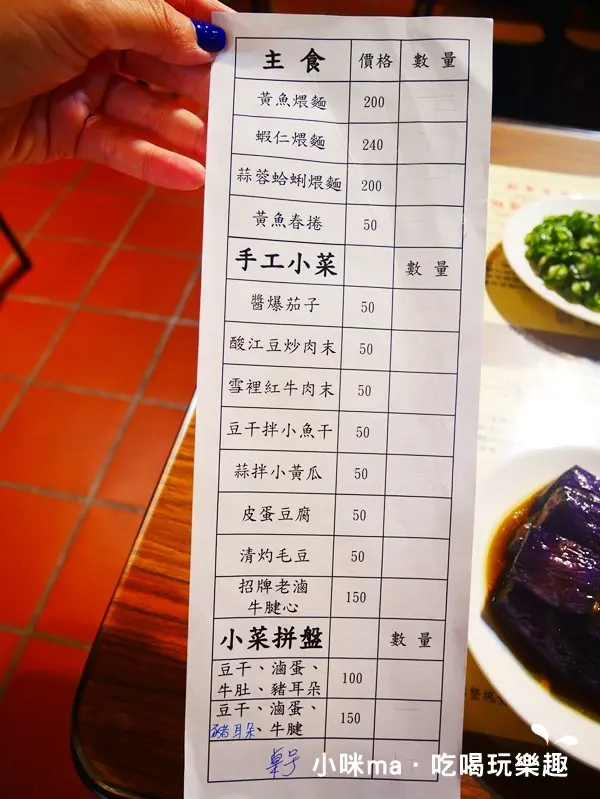 主食 價格 數量
黃魚煨麵 200
蝦仁煨麵 240
蒜蓉蛤蜊煨麵 200
黃魚春捲 50
手工小菜 數量
醬爆茄子 50
酸江豆炒肉末 50
雪裡紅牛肉末 50
豆干拌小魚干 50
蒜拌小黃瓜 50
皮蛋豆腐 50
清灼毛豆 50
招牌老滷
牛腱心 150
小菜拼盤 數量
豆干、滷蛋、
牛肚、豬耳朵 100
豆干、滷蛋、
豬耳朵、牛腱 150
桌号
小咪ma．吃喝玩樂趣